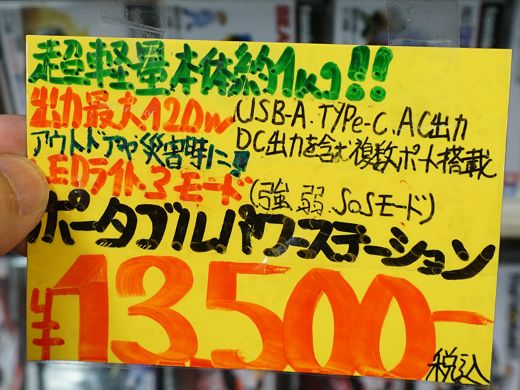 超軽量本体約1kg!!
出力最大120w
USB-A.TYPe-C.AC出力
DC出力を含む複数ポート搭載
アウトドアや災害時に!!
LEDライト3モード
(強.弱.SOSモード)
ポータブルパワーステーション
¥13,500-
税込